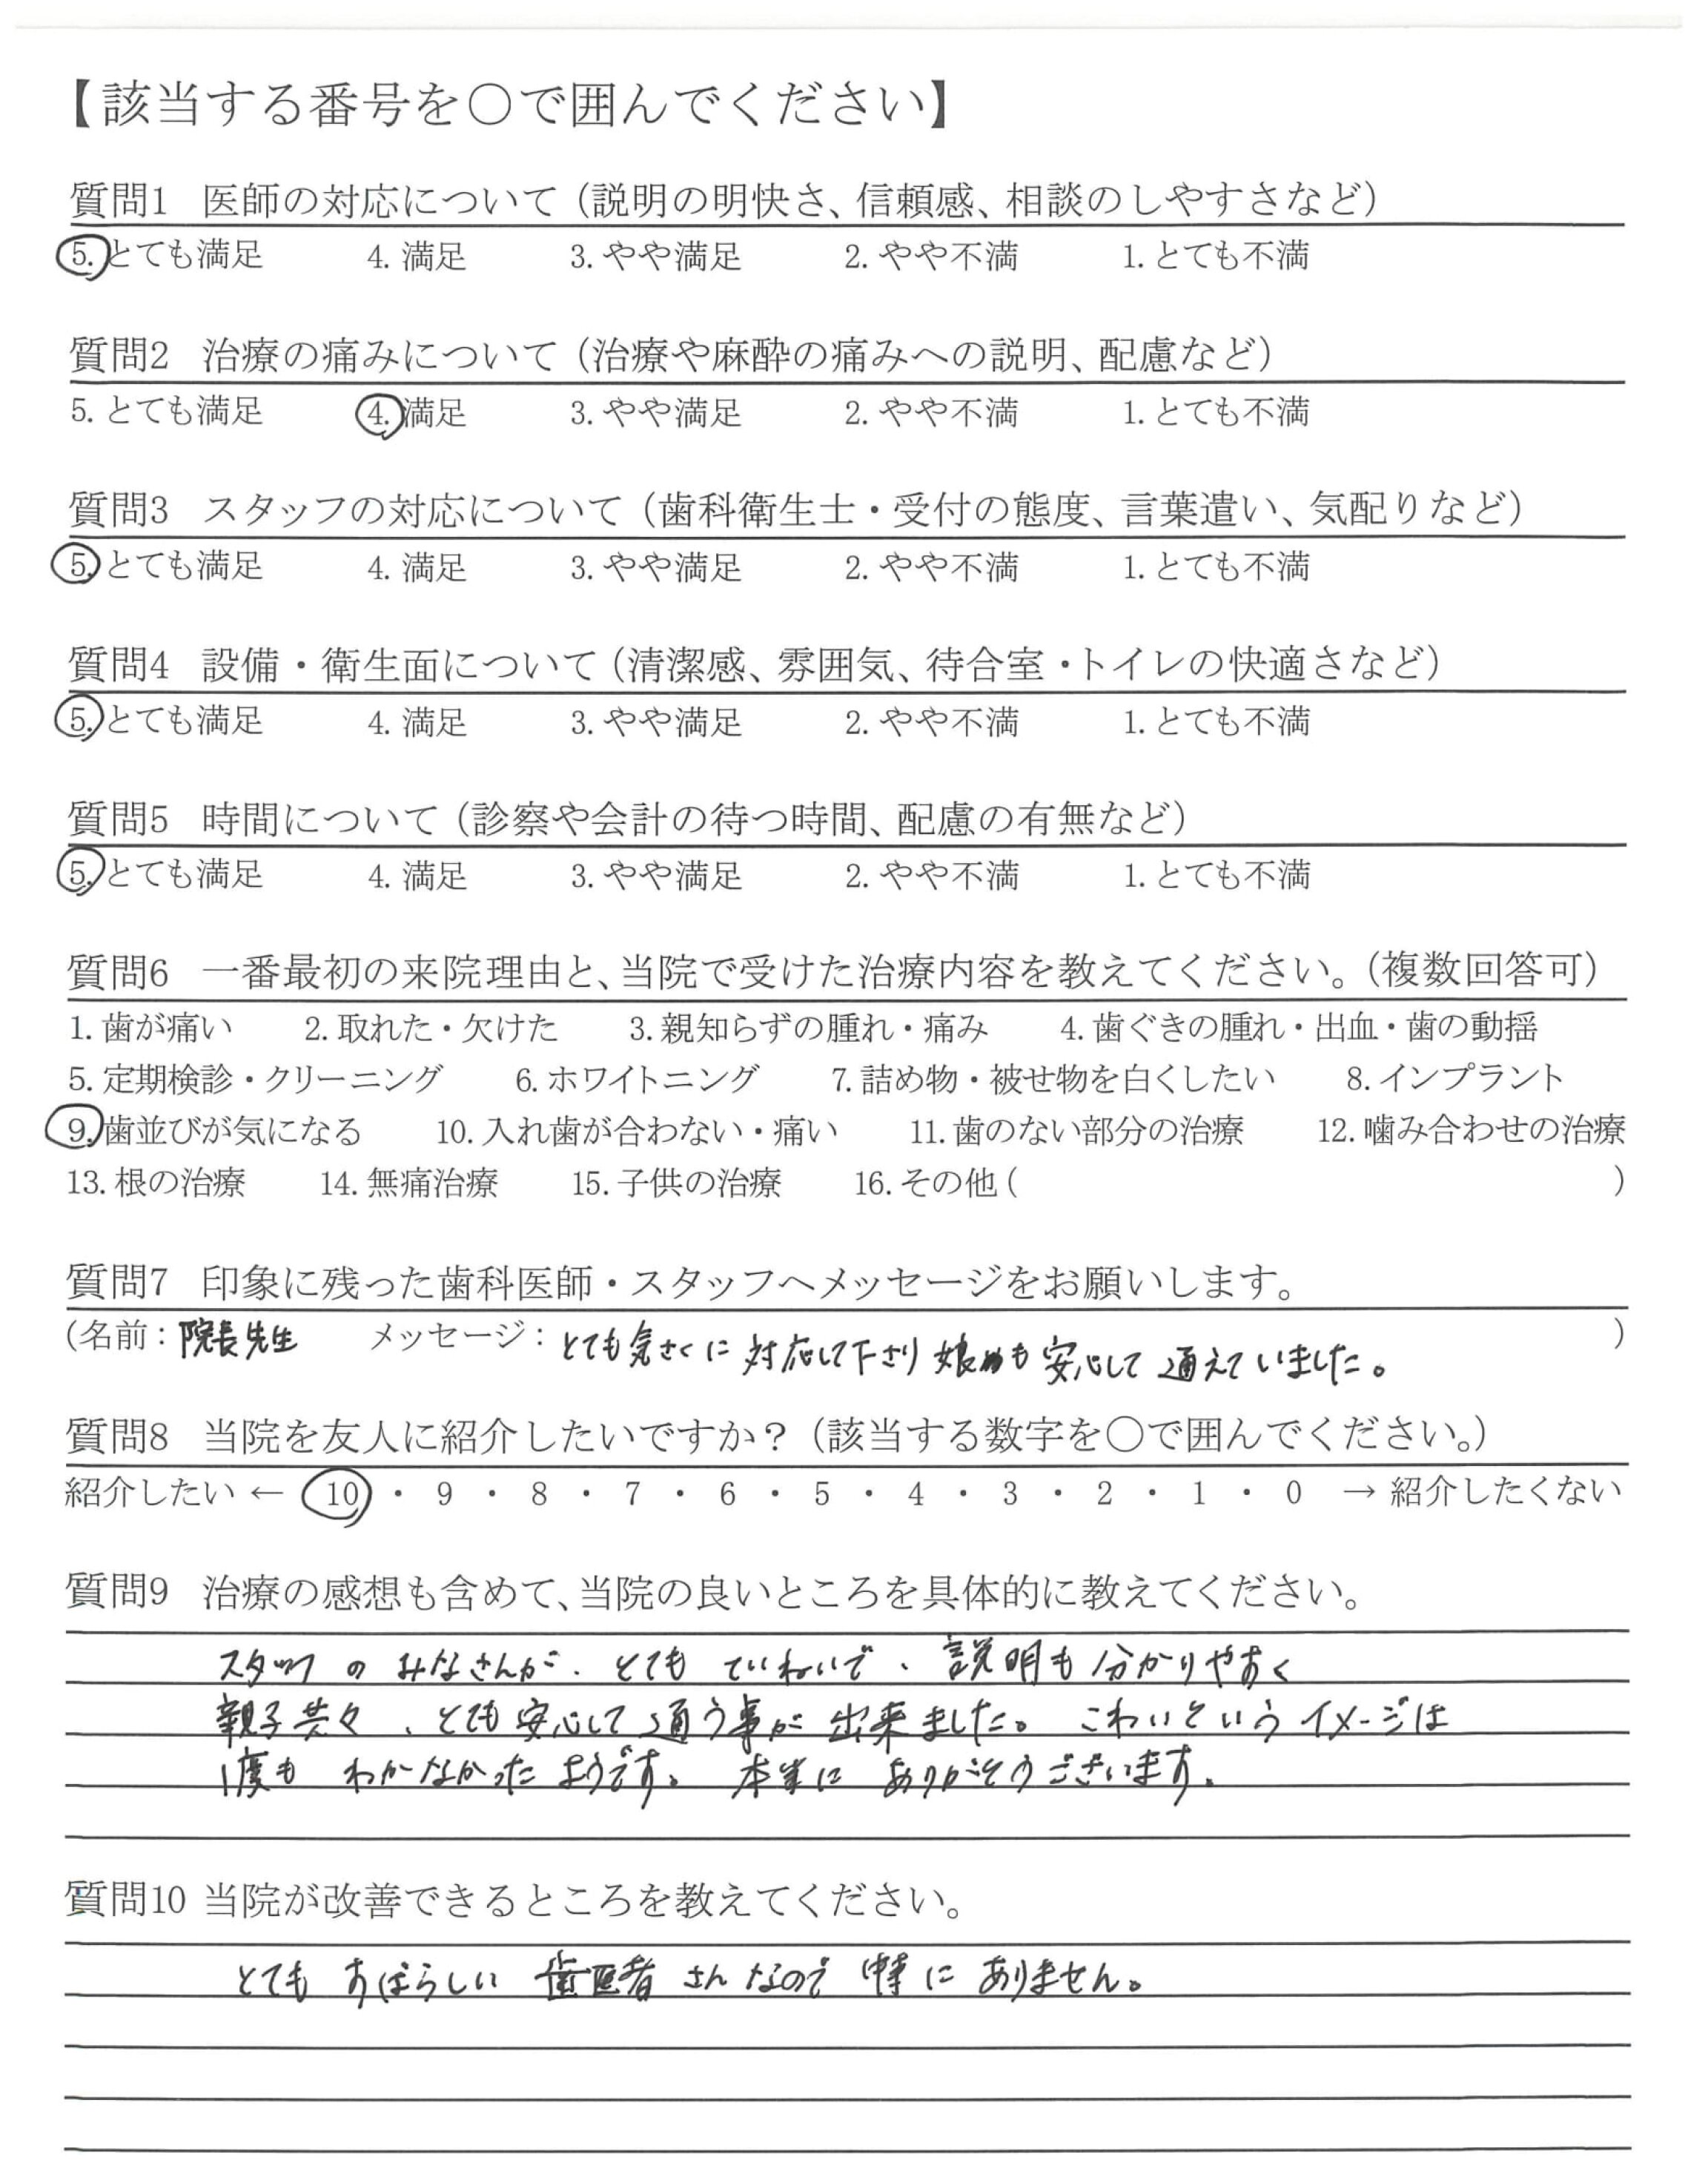 【該当する番号を〇で囲んでください】
質問1 医師の対応について（説明の明快さ、信頼感、相談のしやすさなど）
5. とても満足 4. 満足 3. やや満足 2. やや不満 1. とても不満
質問2 治療の痛みについて（治療や麻酔の痛みへの説明、配慮など）
5. とても満足 4. 満足 3. やや満足 2. やや不満 1. とても不満
質問3 スタッフの対応について（歯科衛生士・受付の態度、言葉遣い、気配りなど）
5. とても満足 4. 満足 3. やや満足 2. やや不満 1. とても不満
質問4 設備・衛生面について（清潔感、雰囲気、待合室・トイレの快適さなど）
5. とても満足 4. 満足 3. やや満足 2. やや不満 1. とても不満
質問5 時間について（診察や会計の待つ時間、配慮の有無など）
5. とても満足 4. 満足 3. やや満足 2. やや不満 1. とても不満
質問6 一番最初の来院理由と、当院で受けた治療内容を教えてください。（複数回答可）
1. 歯が痛い 2. 取れた・欠けた 3. 親知らずの腫れ・痛み 4. 歯ぐきの腫れ・出血・歯の動揺
5. 定期検診・クリーニング 6. ホワイトニング 7. 詰め物・被せ物を白くしたい 8. インプラント
9. 歯並びが気になる 10. 入れ歯が合わない・痛い 11. 歯のない部分の治療 12. 噛み合わせの治療
13. 根の治療 14. 無痛治療 15. 子供の治療 16. その他（ ）
質問7 印象に残った歯科医師・スタッフへメッセージをお願いします。
（名前：院長先生 メッセージ：とても気さくに対応して下さり娘も安心して通えていました。）
質問8 当院を友人に紹介したいですか？（該当する数字を〇で囲んでください。）
紹介したい ← 10 ・ 9 ・ 8 ・ 7 ・ 6 ・ 5 ・ 4 ・ 3 ・ 2 ・ 1 ・ 0 → 紹介したくない
質問9 治療の感想も含めて、当院の良いところを具体的に教えてください。
スタッフのみなさんが、とてもていねいで、説明も分かりやすく
親子共々、とても安心して通う事が出来ました。こわいというイメージは
1度もわかなかったようです。本当にありがとうございます。
質問10 当院が改善できるところを教えてください。
とてもすばらしい歯医者さんなので特にありません。